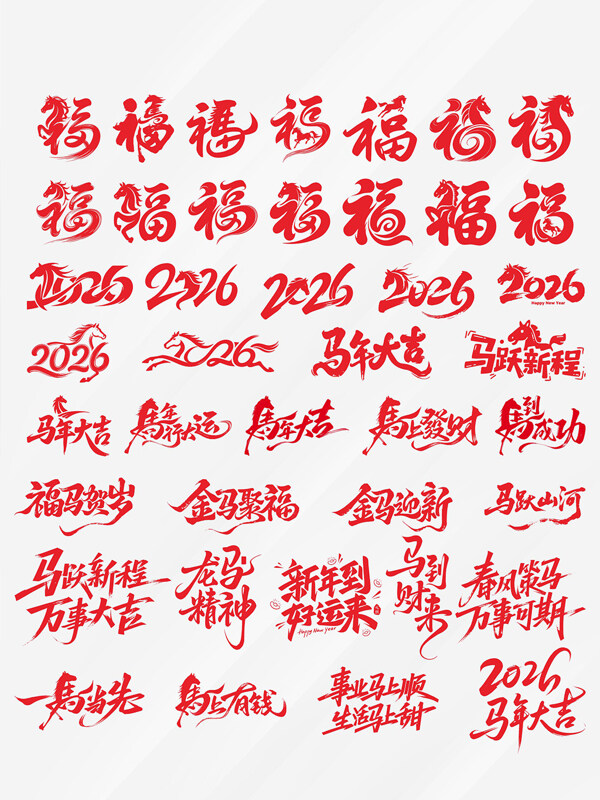 福 福 福 福 福 福 福
福 福 福 福 福 福 福
2026 2026 2026 2026 2026
Happy New Year
2026 2026 马年大吉 马跃新程
马年大吉 馬年行大运 馬年大吉 馬上發财 馬到成功
福马贺岁 金马聚福 金马迎新 马跃山河
马跃新程
万事大吉
龙马
精神
新年到
好运来
Happy New Year
马到
财来
春风策马
万事可期
一馬当先 馬上有钱
事业马上顺
生活马上甜
2026
马年大吉